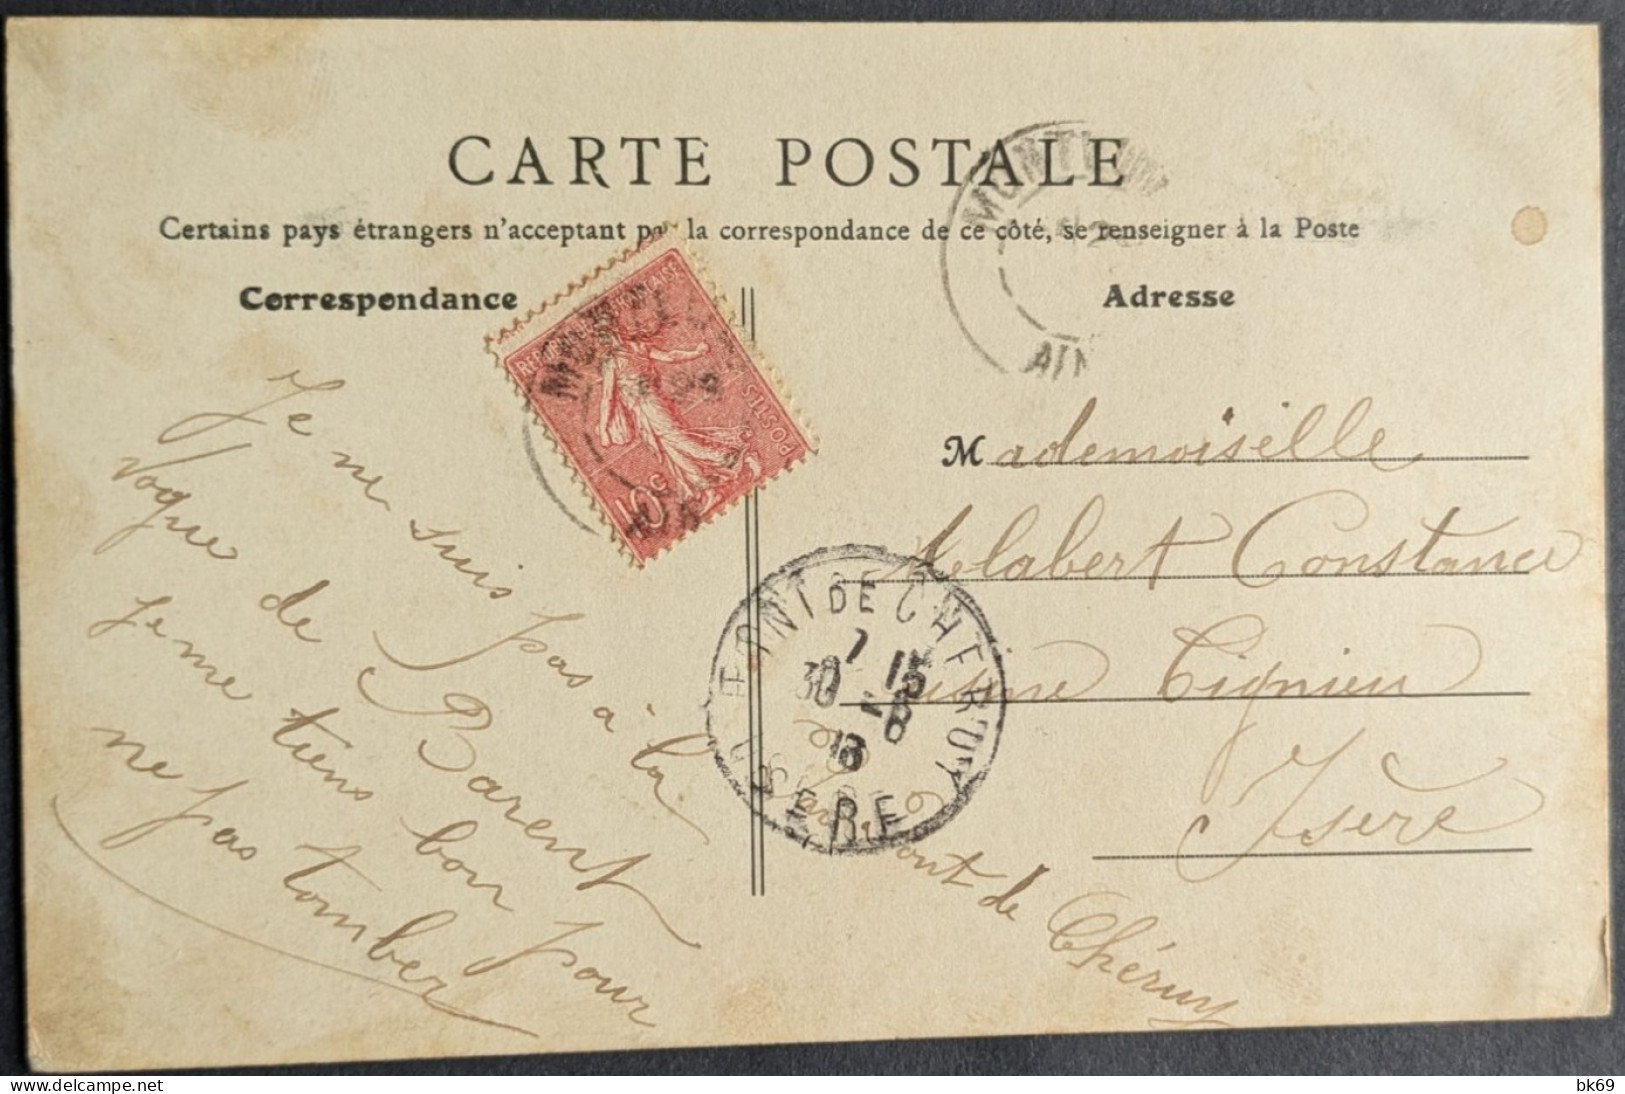 CARTE POSTALE
Certains pays étrangers n'acceptant pas la correspondance de ce côté, se renseigner à la Poste
Correspondance
Adresse
Je ne suis pas à la
Vogue de Barent
Je me tiens bon pour
ne pas tomber
POSTES
10c
MONTLUEL
AIN
PONT DE CHERUY
7 15
30 -8
13
ISERE
Mademoiselle
Alabert Constance
usine Tignieu
Isère
par Pont de Chéruy
delcampe.net
bk69